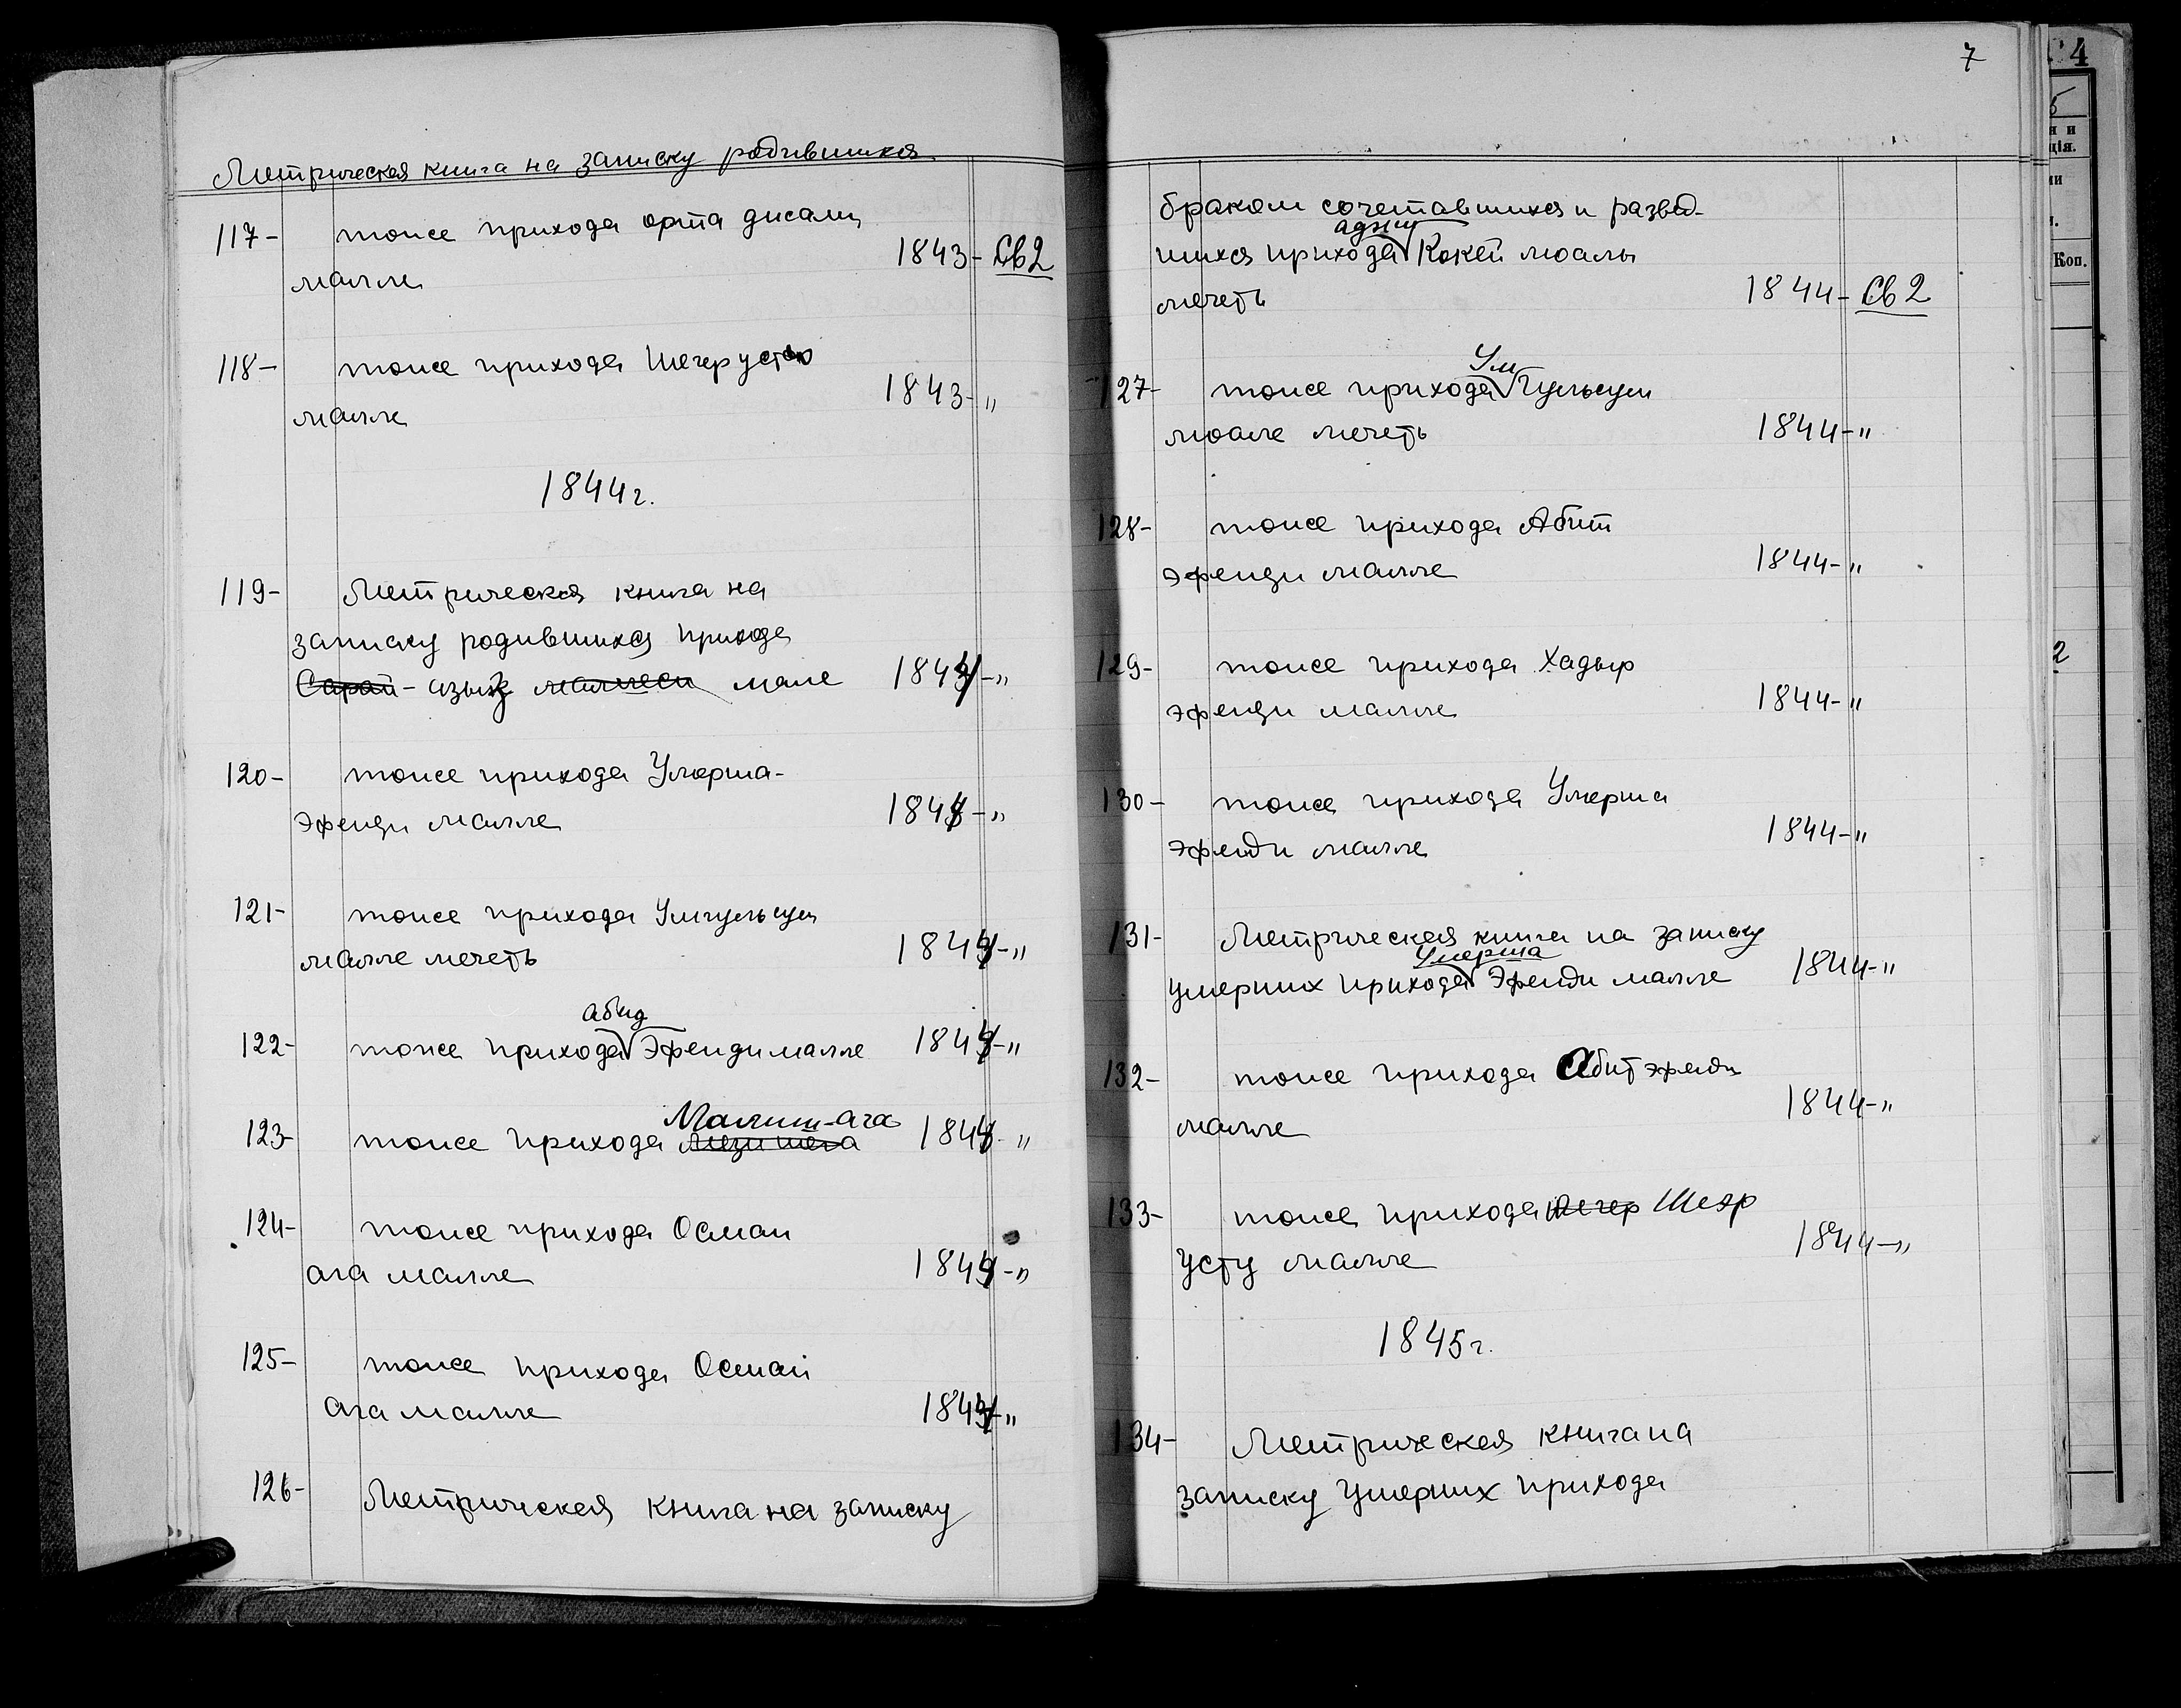 Метрическая книга на записку родившихся
117- тоже прихода орта джами
малле 1843- Св2
118- тоже прихода Шегер уста
малле 1843- "
1844 г.
119- Метрическая книга на
записку родившихся прихода
Сарай-азыз маллеси мале 1844- "
120- тоже прихода Умерша-
эфенди малле 1844- "
121- тоже прихода Умгульсум
малле мечеть 1844- "
абид
122- тоже прихода Эфенди малле 1844- "
Малиш-ага
123- тоже прихода 1844- "
124- тоже прихода Осман
ага малле 1844- "
125- тоже прихода Осман
Ага малле 1844- "
126- Метрическая книга на записку
7
браком сочетавшихся и развед-
аджи
шихся прихода Кокей моалы
мечеть 1844- Св2
Ум
127- тоже прихода Гульсум
моале мечеть 1844- "
128- тоже прихода Абит
эфенди малле 1844- "
129- тоже прихода Хадыр
эфенди малле 1844- "
130- тоже прихода Умерша
эфенди малле 1844- "
131- Метрическая книга на записку
Умерша
умерших прихода Эфенди малле 1844- "
132- тоже прихода Абит эфенди
малле 1844- "
133- тоже прихода Шегер Шеэр
усту малле 1844- "
1845 г.
134- Метрическая книга на
записку умерших прихода
4
5
Коп.
2